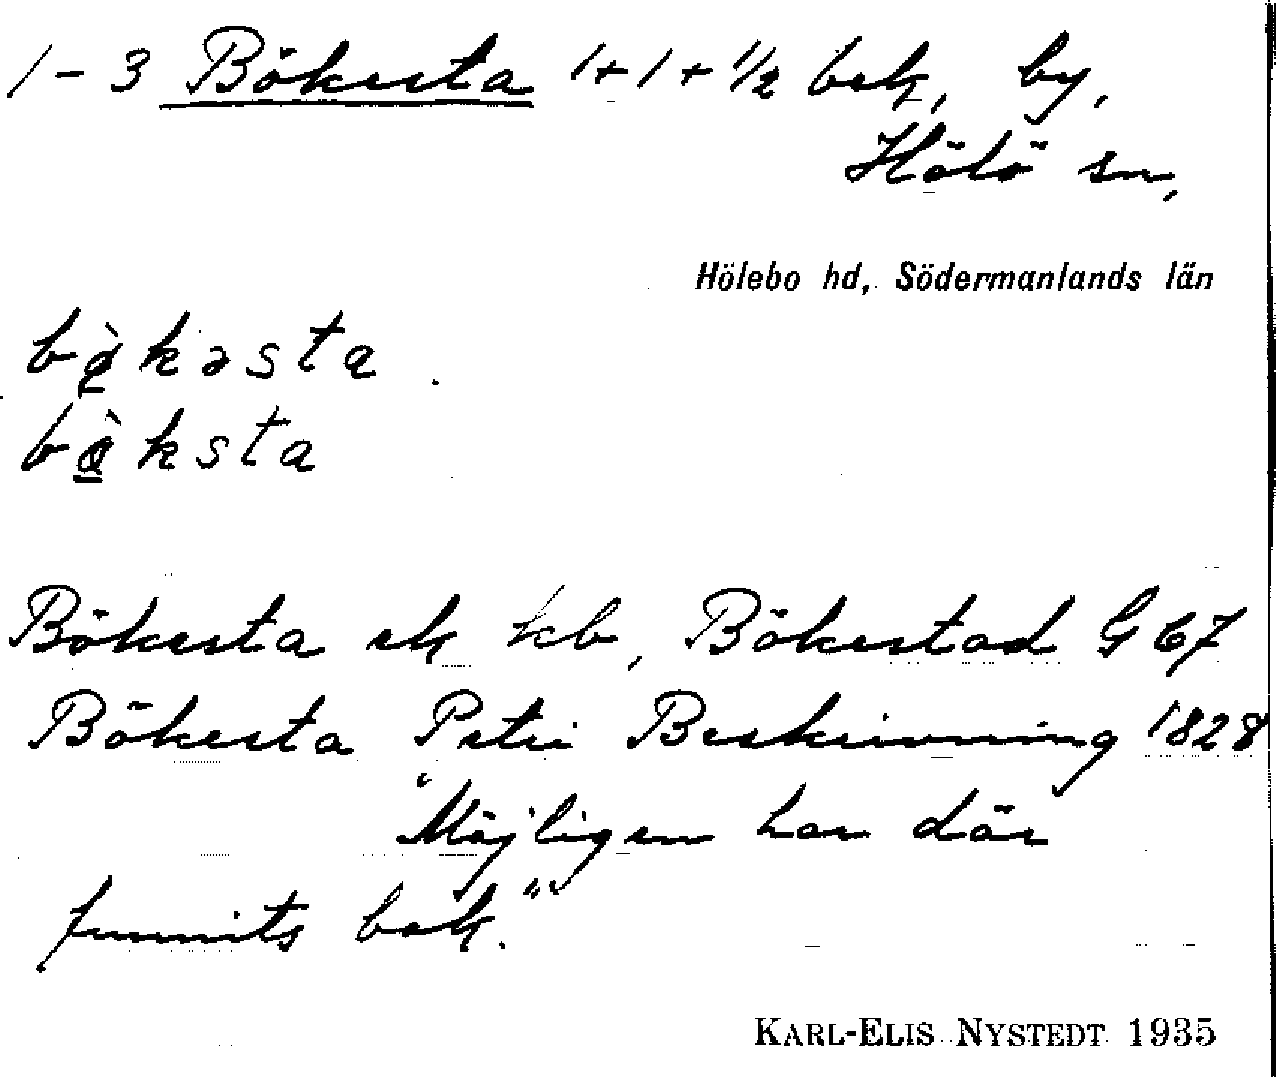 1-3 Bökesta 1+1+1/2 bek, by,
Hölö sn,
Hölebo hd, Södermanlands län
bø̀kəsta
bø̀ksta
Bökesta ek kb, Bökestad G 67
Bökesta Petri Beskrivning 1828
"Möjligen har där
funnits bok."
KARL-ELIS NYSTEDT 1935